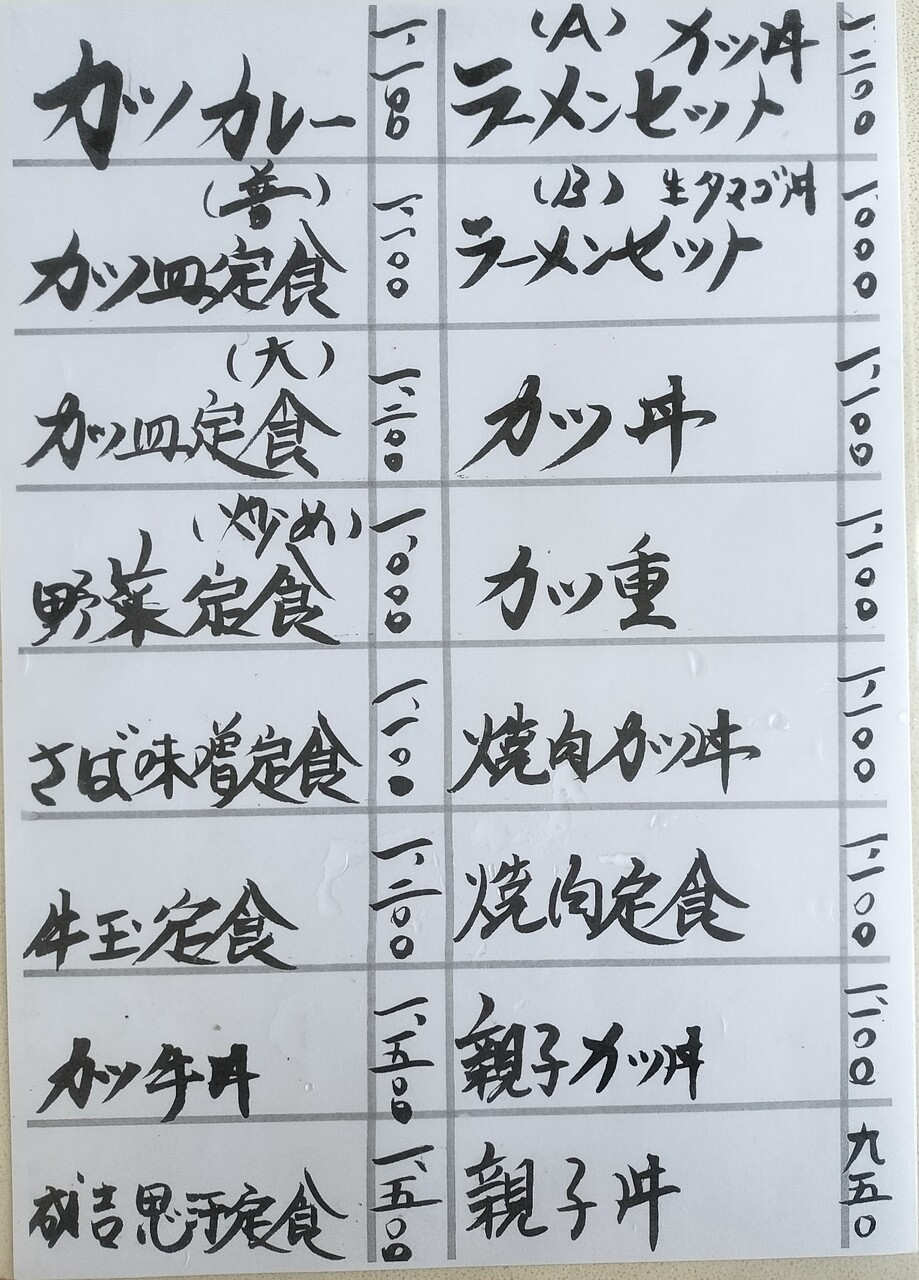 カツカレー
一、一〇〇
(普)
カツ皿定食
一、一〇〇
(大)
カツ皿定食
一、二〇〇
(炒め)
野菜定食
一、〇〇〇
さば味噌定食
一、一〇〇
牛玉定食
一、二〇〇
カツ牛丼
一、五〇〇
成吉思汗定食
一、五〇〇
(A) カツ丼
ラーメンセット
一、二〇〇
(B) 生タマゴ丼
ラーメンセット
一、〇〇〇
カツ丼
一、一〇〇
カツ重
一、一〇〇
焼肉カツ丼
一、一〇〇
焼肉定食
一、一〇〇
親子カツ丼
一、一〇〇
親子丼
九五〇